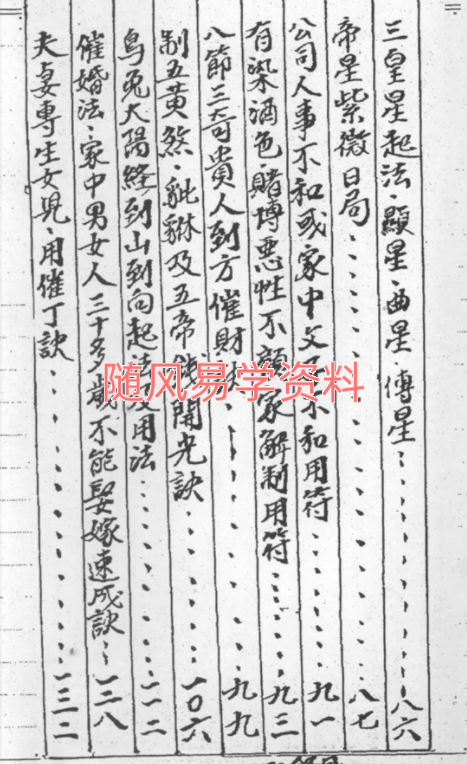 三皇星起法、顯星、曲星、傅星、、、、、、、八六
帝星紫微日局、、、、、、、、、、八七
公司人事不和或家中父子不和用符、、、、、、九一
有染酒色賭博惡性不顧家解制用符、、、、、九三
八節三奇貴人到方催財法、、、、、、九九
制五黃煞、貔貅及五帝錢開光訣、、、、、一0六
烏兔太陽經到山到向起法及用法、、、、、、一一二
催婚法、家中男女人三十多歲不能娶嫁速成訣、、一二八
夫妻專生女兒、用催丁訣、、、、、、、、一三二
随风易学资料